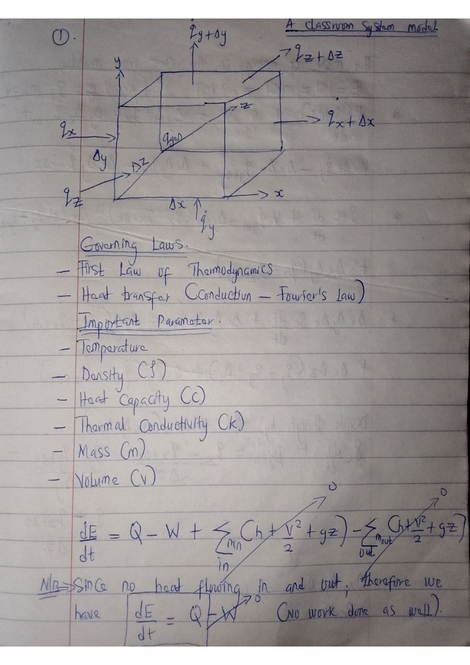 A classroom system model
①.
q̇y+Δy
qz+Δz
y
z
qx
q̇x+Δx
Δy
Δz
qgen
qz
Δx
x
q̇y
Governing Laws.
- First Law of Thermodynamics
- Heat transfer (Conduction - Fourier's Law)
Important Parameter.
- Temperature
- Density (ρ)
- Heat Capacity (C)
- Thermal Conductivity (k)
- Mass (m)
- Volume (V)
0 0
dE/dt = Q - W + Σin min (h + V²/2 + gz) - Σout mout (h + V²/2 + gz)
N/B => Since no heat flowing in and out, therefore we
have dE/dt = Q - W 0 (No work done as well).